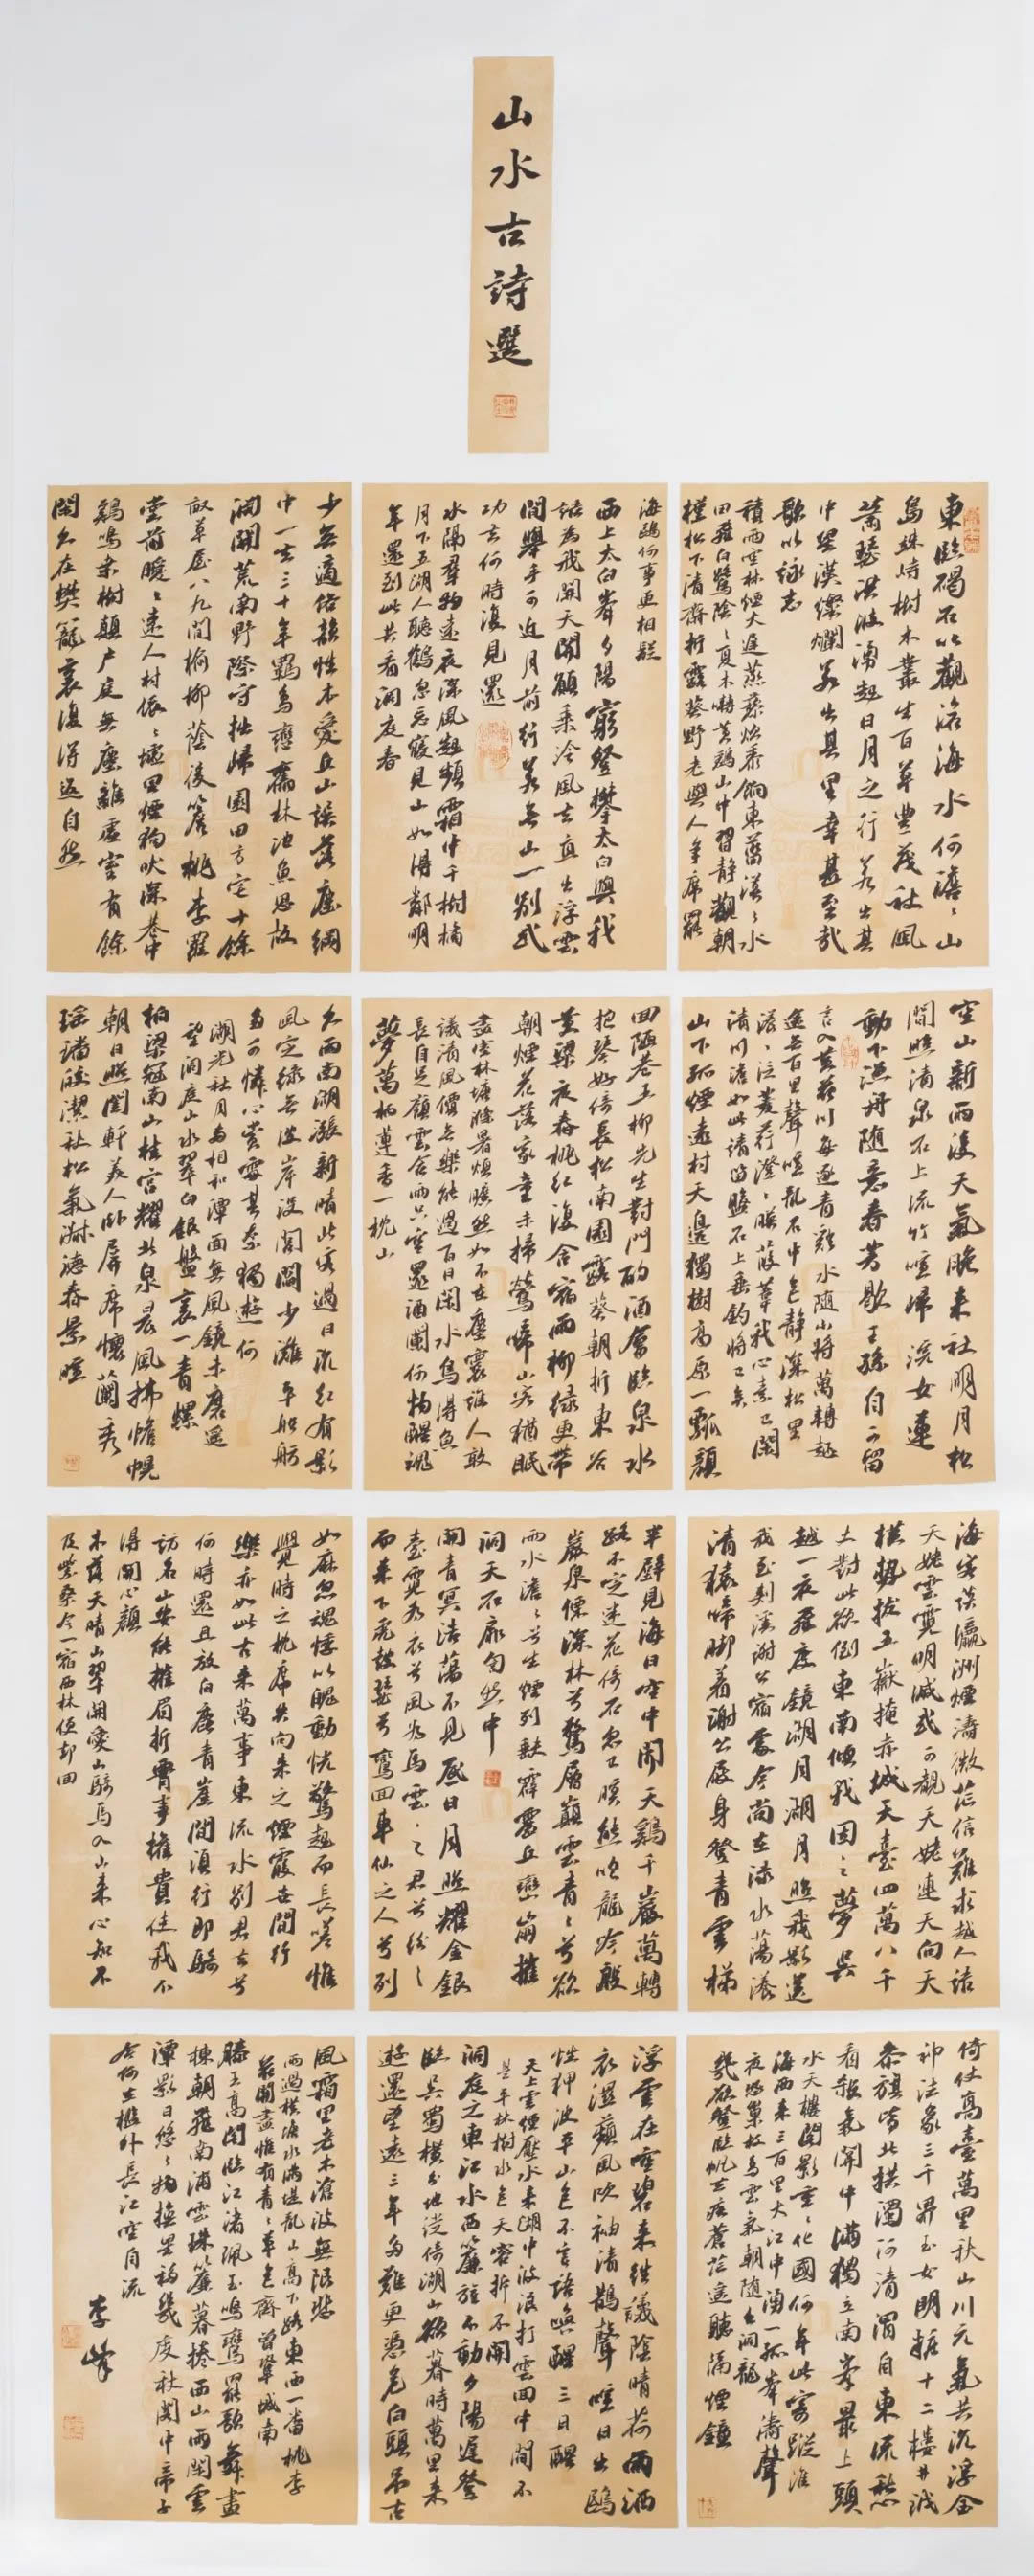 山水古詩選
東臨碣石以觀滄海水何澹〻山
島竦峙樹木叢生百草豐茂秋風
蕭瑟洪波湧起日月之行若出其
中星漢燦爛若出其里幸甚至哉
歌以詠志
積雨空林煙火遲蒸藜炊黍餉東菑漠〻水
田飛白鷺陰〻夏木囀黃鸝山中習靜觀朝
槿松下清齋折露葵野老與人爭席罷
海鷗何事更相疑
西上太白峯夕陽窮登攀太白與我
語為我開天關願乘泠風去直出浮雲
間舉手可近月前行若無山一別武
功去何時復見還
水隔羣物遠夜深風起頻霜中千樹橘
月下五湖人聽鶴忽忘寢見山如得鄰明
年還到此共看洞庭春
少無適俗韻性本愛丘山誤落塵網
中一去三十年羈鳥戀舊林池魚思故
淵開荒南野際守拙歸園田方宅十餘
畝草屋八九間榆柳蔭後簷桃李羅
堂前曖〻遠人村依〻墟里煙狗吠深巷中
鷄鳴桑樹顛戶庭無塵雜虛室有餘
閑久在樊籠裏復得返自然
空山新雨後天氣晚來秋明月松
間照清泉石上流竹喧歸浣女蓮
動下漁舟隨意春芳歇王孫自可留
言入黃花川每逐青谿水隨山將萬轉趣
途無百里聲喧亂石中色靜深松里
漾〻泛菱荇澄〻映葭葦我心素已閑
清川澹如此請留盤石上垂釣將已矣
山下孤煙遠村天邊獨樹高原一瓢顏
回陋巷五柳先生對門酌酒會臨泉水
抱琴好倚長松南園露葵朝折東谷
黃粱夜舂桃紅復含宿雨柳綠更帶
朝煙花落家童未掃鶯啼山客猶眠
盡室林塘滌暑煩曠然如不在塵寰誰人敢
議清風價無樂能過百日閑水鳥得魚
長自足嶺雲含雨只空還酒闌何物醒魂
夢萬柄蓮香一枕山
久雨南湖漲新晴北客過日沉紅有影
風定綠無波岸沒閭閻少灘平船舫
多可憐心賞處其奈獨遊何
湖光秋月兩相和潭面無風鏡未磨遙
望洞庭山水翠白銀盤裏一青螺
柏梁冠南山桂宮耀北泉晨風拂幨幌
朝日照閨軒美人臥屏席懷蘭秀
瑤璠皎潔秋松氣淑德春景暄
海客談瀛洲煙濤微茫信難求越人語
天姥雲霓明滅或可覩天姥連天向天
橫勢拔五嶽掩赤城天臺四萬八千
丈對此欲倒東南傾我因之夢吳
越一夜飛度鏡湖月湖月照我影送
我至剡溪謝公宿處今尚在淥水蕩漾
清猿啼脚着謝公屐身登青雲梯
半壁見海日空中聞天鷄千巖萬轉
路不定迷花倚石忽已暝熊咆龍吟殷
巖泉慄深林兮驚層巔雲青〻兮欲
雨水澹〻兮生煙列缺霹靂丘巒崩摧
洞天石扉訇然中
開青冥浩蕩不見底日月照耀金銀
臺霓為衣兮風為馬雲〻之君兮紛〻
而來下虎鼓瑟兮鸞回車仙之人兮列
如麻忽魂悸以魄動恍驚起而長嗟惟
覺時之枕席失向來之煙霞世間行
樂亦如此古來萬事東流水別君去兮
何時還且放白鹿青崖間須行即騎
訪名山安能摧眉折腰事權貴使我不
得開心顏
木落天晴山翠開愛山騎馬入山來心知不
及柴桑令一宿西林便却回
倚仗高臺萬里秋山川元氣共沉浮金
神法象三千界玉女明妝十二樓井鉞
參旗皆北拱濁河清渭自東流愁
看殺氣關中滿獨立南峯最上頭
水天樓閣影重〻化國何年此寄蹤淮
海西來三百里大江中湧一孤峯濤聲
夜恐巢枝鳥雲氣朝隨出洞龍
幾欲登臨帆去疾蒼茫遙聽隔煙鐘
浮雲在空碧來往議陰晴荷雨洒
衣濕蘋風吹袖清鵲聲喧日出鷗
性狎波平山色不言語喚醒三日酲
天上雲煙壓水來湖中波浪打雲回中間不
是平林樹水色天容拆不開
洞庭之東江水西簾旌不動夕陽遲登
臨吳蜀橫分地徙倚湖山欲暮時萬里來
遊還望遠三年多難更憑危白頭弔古
風霜里老木滄波無限悲
雨過橫塘水滿堤亂山高下路東西一番桃李
花開盡惟有青〻草色齊曾鞏城南
滕王高閣臨江渚珮玉鳴鸞罷歌舞畫
棟朝飛南浦雲珠簾暮捲西山雨閑雲
潭影日悠〻物換星移幾度秋閣中帝子
今何在檻外長江空自流
李峰